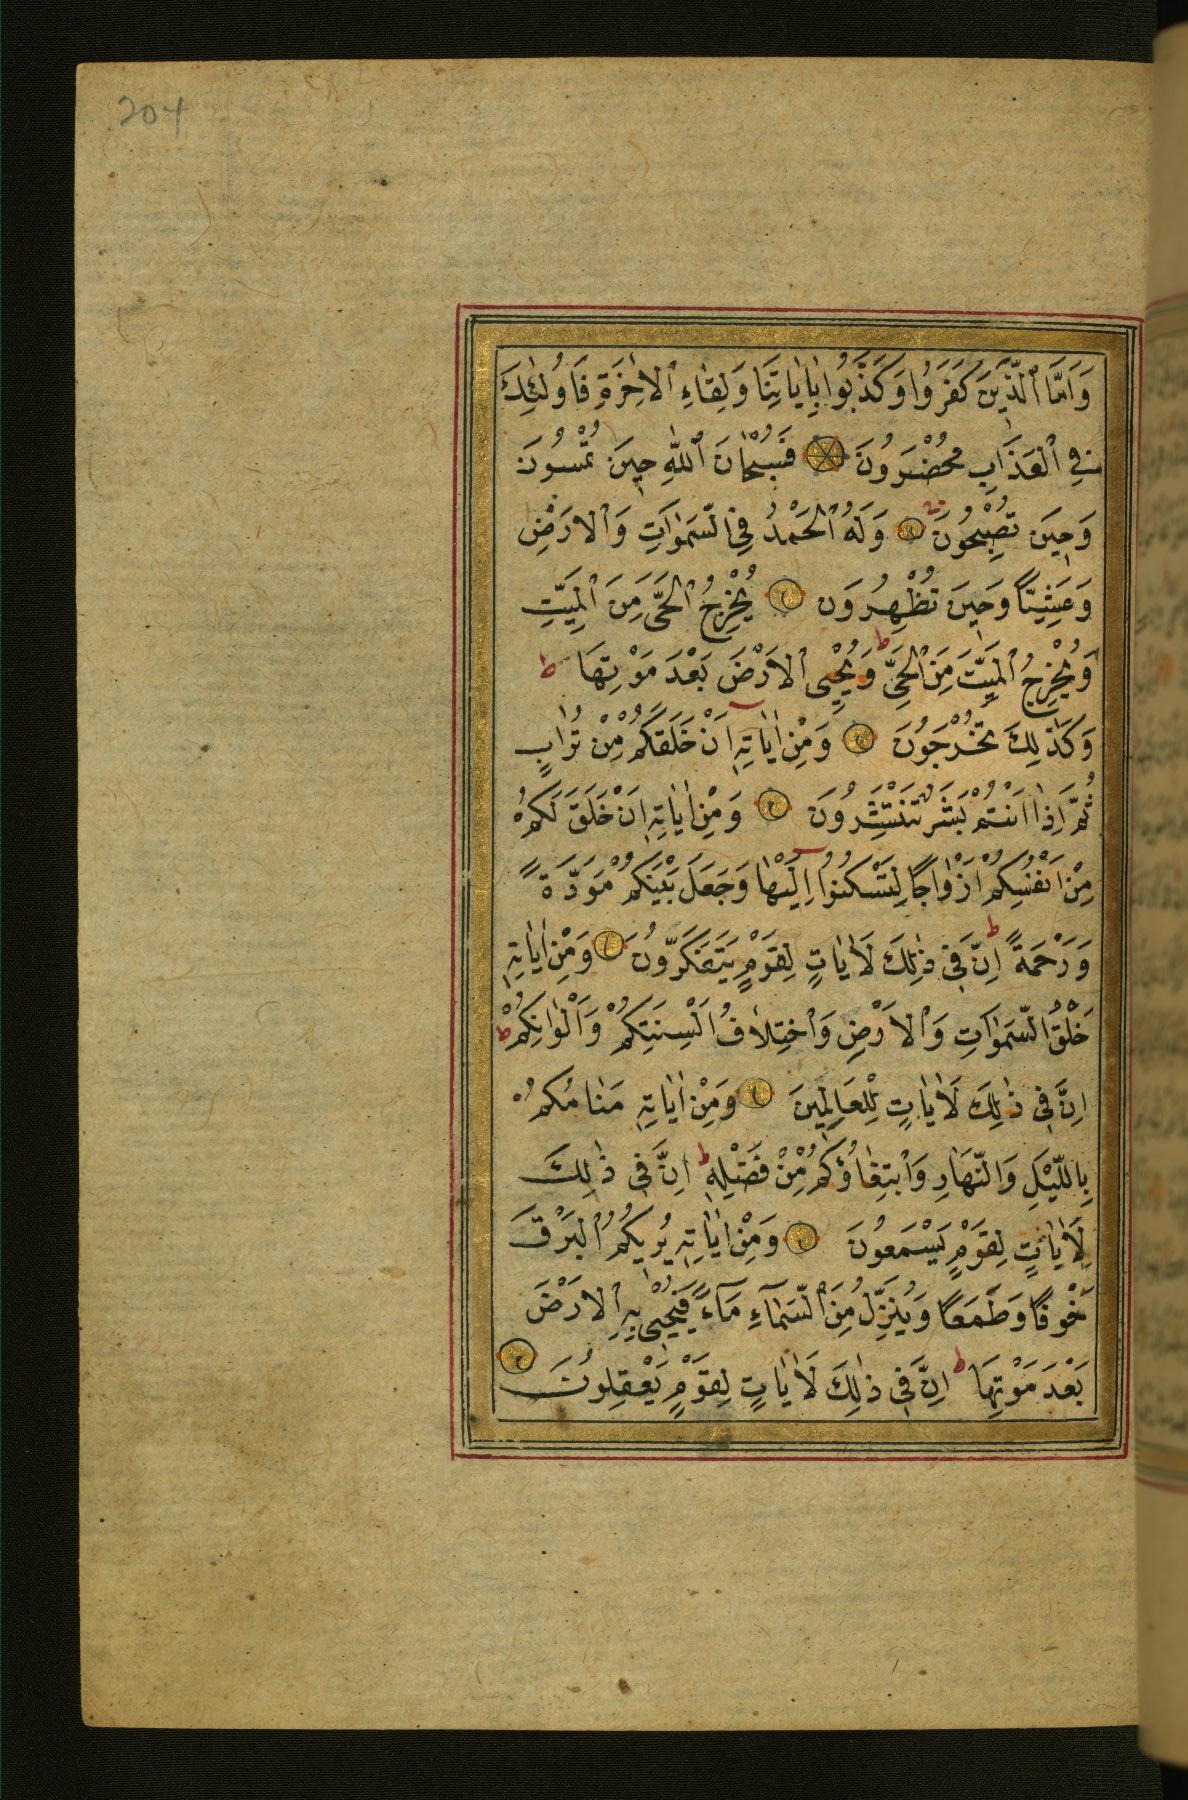 204
وَاَمَّا ٱلَّذِينَ كَفَرَوُا وَكَذَّبُوا بِاٰيَاتِنَا وَلِقَاءِ ٱلاٰخِرَةِ فَاُولٰئِكَ
فِي ٱلْعَذَابِ مُحْضَرُونَ فَسُبْحَانَ ٱللّٰهِ حِينَ تُمْسُونَ
وَحِينَ تُصْبِحُونَ وَلَهُ ٱلْحَمْدُ فِي السَّمٰوَاتِ وَٱلْاَرْضِ
وَعَشِيًّا وَحِينَ تُظْهِرُونَ يُخْرِجُ ٱلْحَيَّ مِنَ ٱلْمَيِّتِ
وَيُخْرِجُ ٱلْمَيِّتَ مِنَ ٱلْحَيِّ ط وَيُحْيِي ٱلْاَرْضَ بَعْدَ مَوْتِهَا ط
وَكَذٰلِكَ تُخْرَجُونَ وَمِنْ اٰيَاتِهِ اَنْ خَلَقَكُمْ مِنْ تُرَابٍ
ثُمَّ اِذَا اَنْتُمْ بَشَرٌ تَنْتَشِرُونَ وَمِنْ اٰيَاتِهِ اَنْ خَلَقَ لَكُمْ
مِنْ اَنْفُسِكُمْ اَزْوَاجًا لِتَسْكُنُوا اِلَيْهَا وَجَعَلَ بَيْنَكُمْ مَوَدَّةً
وَرَحْمَةً ط اِنَّ فِي ذٰلِكَ لَاٰيَاتٍ لِقَوْمٍ يَتَفَكَّرُونَ وَمِنْ اٰيَاتِهِ
خَلْقُ السَّمٰوَاتِ وَٱلْاَرْضِ وَٱخْتِلَافُ اَلْسِنَتِكُمْ وَاَلْوَانِكُمْ ط
اِنَّ فِي ذٰلِكَ لَاٰيَاتٍ لِلْعَالِمِينَ وَمِنْ اٰيَاتِهِ مَنَامُكُمْ
بِاللَّيْلِ وَالنَّهَارِ وَٱبْتِغَاؤُكُمْ مِنْ فَضْلِهِ ط اِنَّ فِي ذٰلِكَ
لَاٰيَاتٍ لِقَوْمٍ يَسْمَعُونَ وَمِنْ اٰيَاتِهِ يُرِيكُمُ ٱلْبَرْقَ
خَوْفًا وَطَمَعًا وَيُنَزِّلُ مِنَ ٱلسَّمَآءِ مَآءً فَيُحْيِي بِهِ ٱلْاَرْضَ
بَعْدَ مَوْتِهَا ط اِنَّ فِي ذٰلِكَ لَاٰيَاتٍ لِقَوْمٍ يَعْقِلُونَ